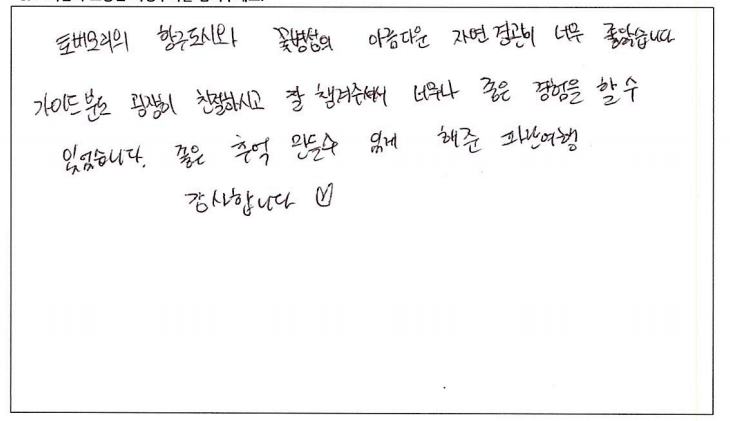 토버모리의 항구도시와 꽃병섬의 아름다운 자연경관이 너무 좋았습니다
가이드분도 굉장히 친절하시고 잘 챙겨주셔서 너무나 좋은 경험을 할 수
있었습니다. 좋은 추억 만들수 있게 해준 파란여행
감사합니다